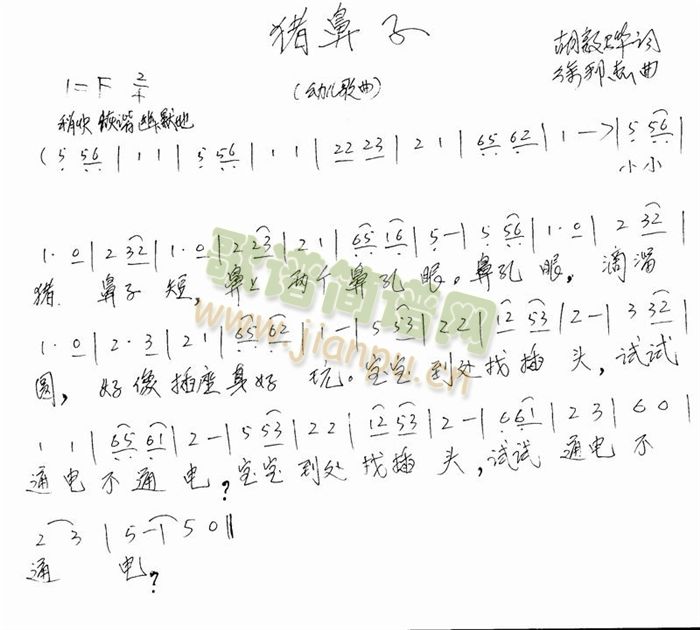 猪鼻子
胡敦骅词
徐邦杰曲
1=F 2/4
(幼儿歌曲)
稍快 诙谐幽默地
(5 56 | 1 1 | 5 56 | 1 1 | 22 23 | 2 1 | 65 62 | 1 —> | 5 56 |
小小
1·0 | 2 32 | 1·0 | 2 23 | 2 1 | 65 16 | 5 - | 5 56 | 1·0 | 2 32 |
猪 鼻子 短, 鼻上 两个 鼻孔 眼。鼻孔 眼, 滴溜
1·0 | 2·3 | 2 1 | 65 62 | 1 - | 5 53 | 2 2 | 12 53 | 2 - | 3 32 |
圆, 好像插座真好 玩。宝宝 到处找插 头, 试试
1 1 | 65 61 | 2 - | 5 53 | 2 2 | 12 53 | 2 - | 6 61 | 2 3 | 6 0 |
通电不通 电?宝宝到处 找插 头,试试 通电 不
2 3 | 5 - | 5 0 ‖
通 电?
歌谱简谱网
www.jianpu.cn